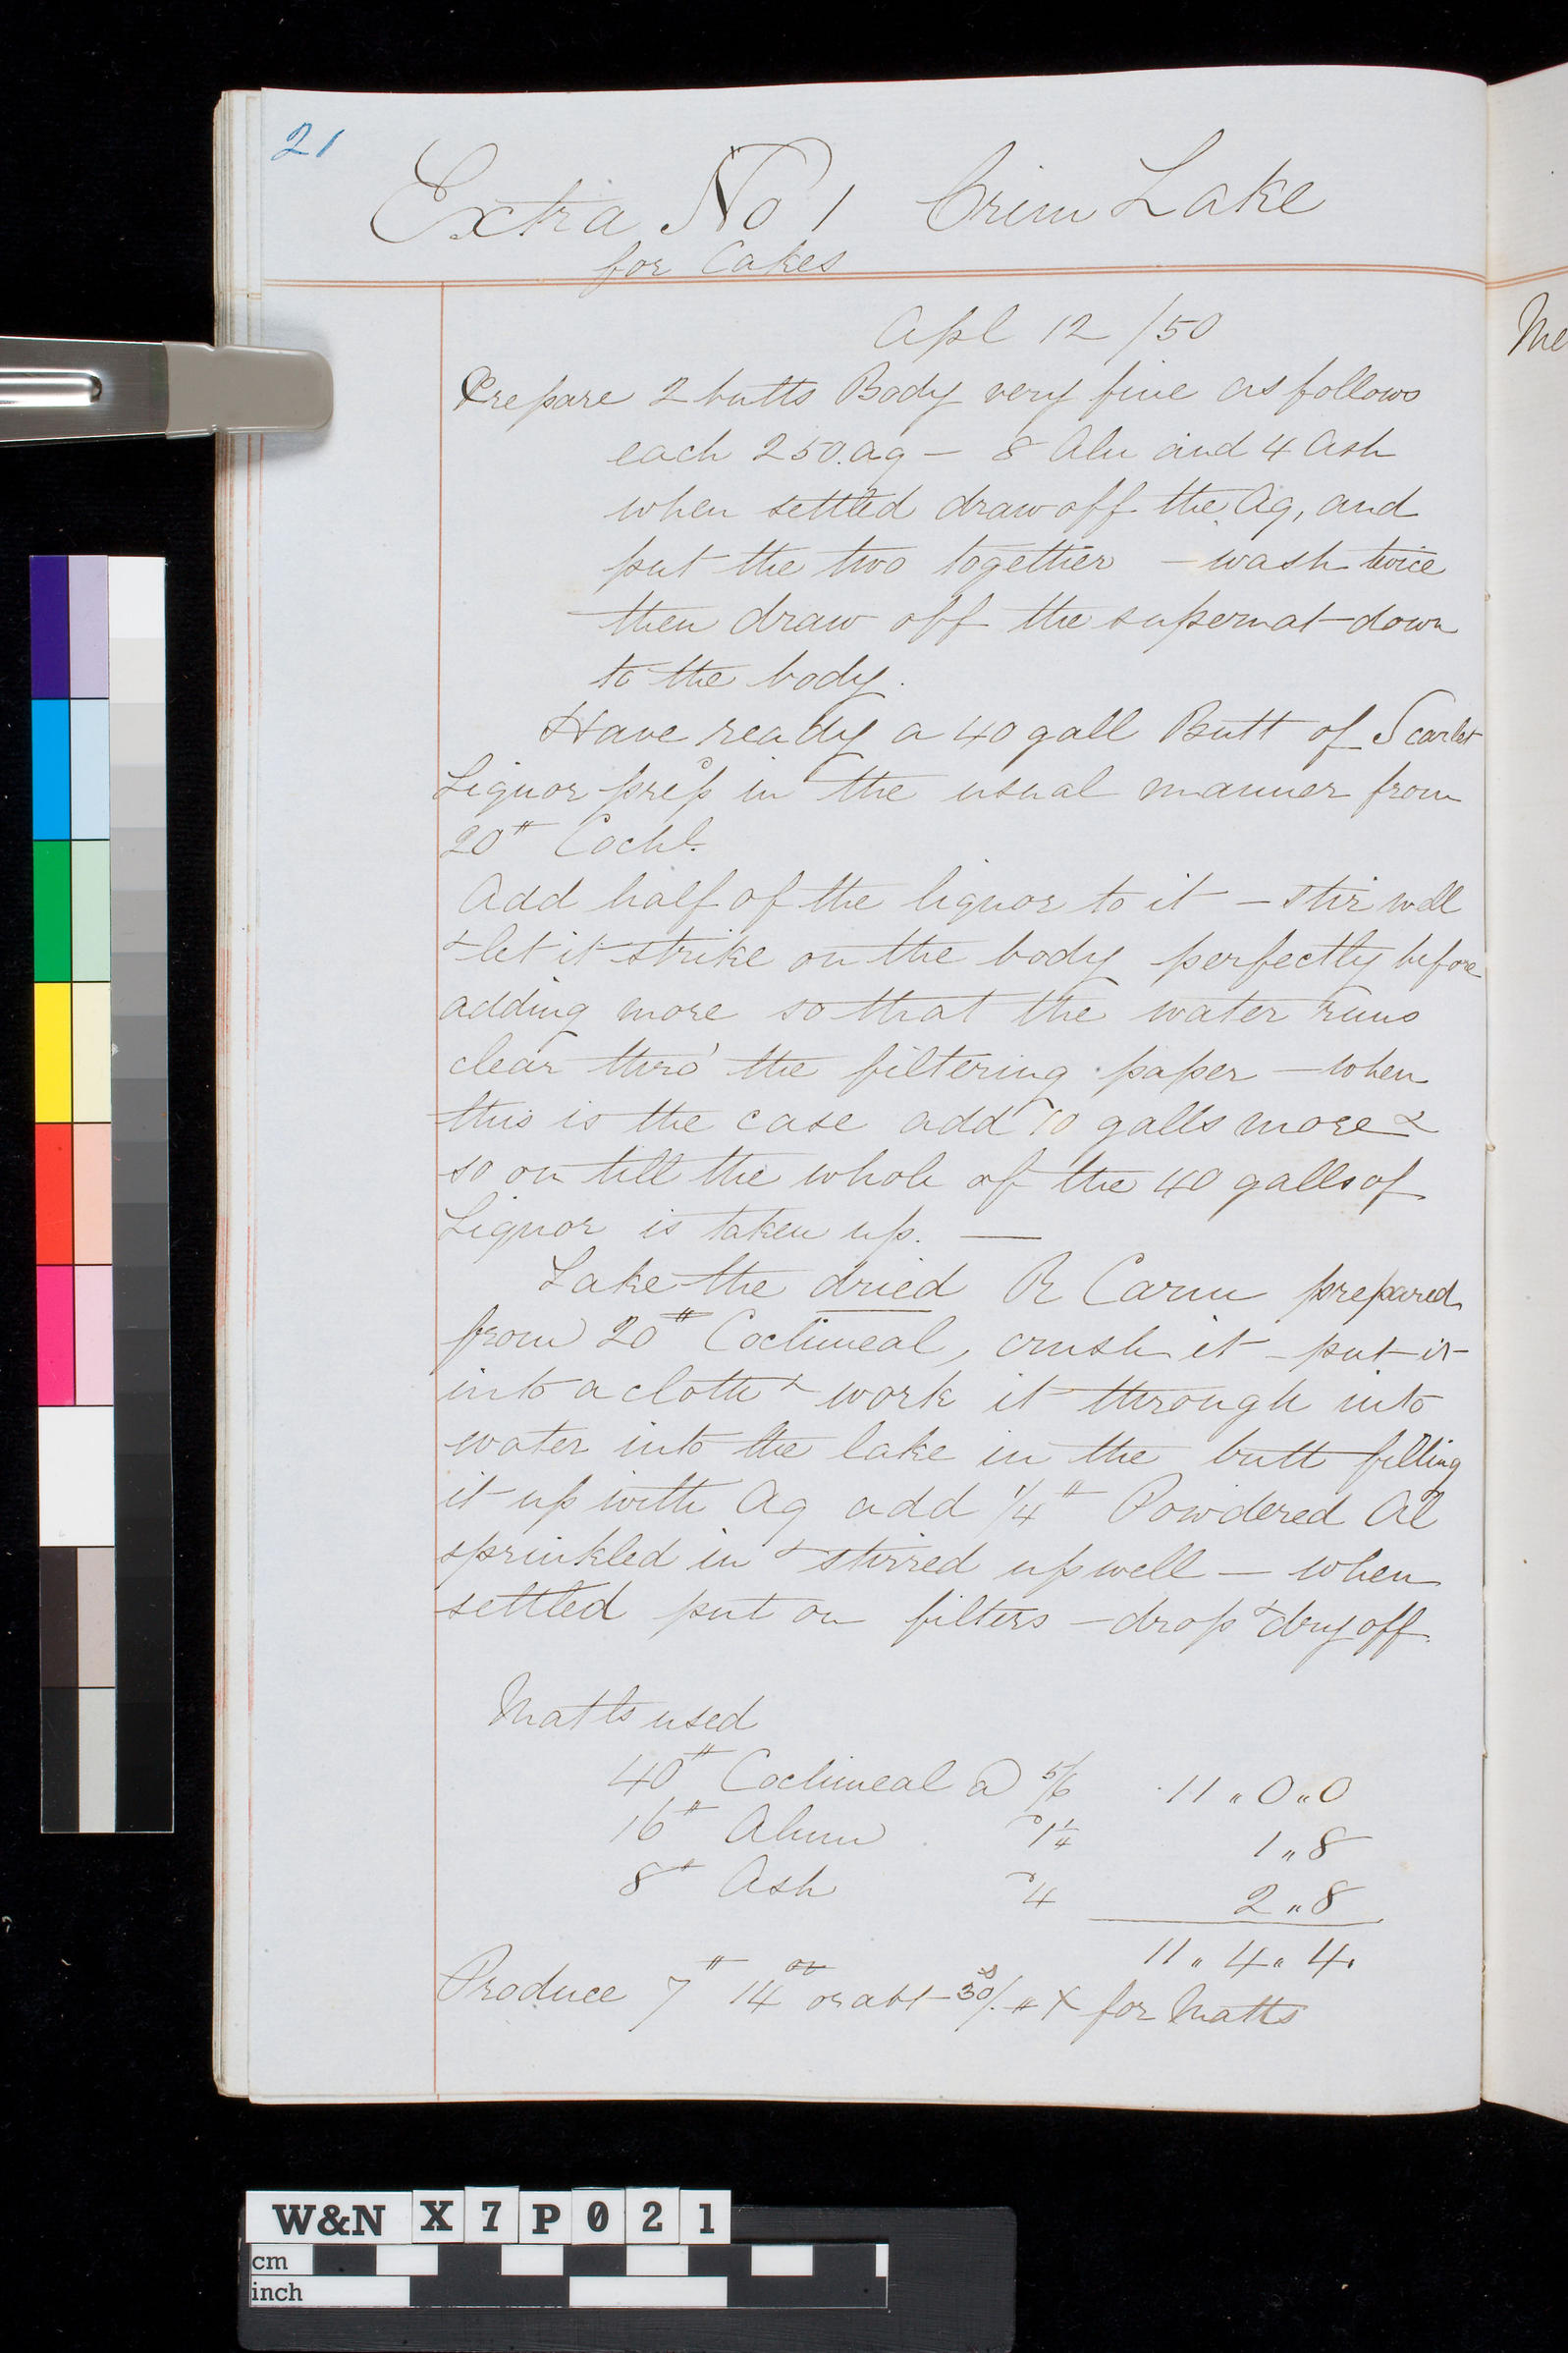 21
Extra No 1 Crim Lake
for Cakes
Apl 12 /50
Me
Prepare 2 butts Body very fine as follows
each 250.aq – 8 Alu and 4 Ash
when settled draw off the Aq, and
put the two together – wash twice
then draw off the supernat down
to the body.
Have ready a 40 gall Butt of Scarlet
Liquor prepd in the usual manner from
20# Cochl.
Add half of the liquor to it – stir well
& let it strike on the body perfectly before
adding more so that the water runs
clear thro' the filtering paper – when
this is the case add 10 galls more &
so on till the whole of the 40 galls of
Liquor is taken up. —
Take the dried R Carm prepared
from 20# Cochineal, crush it – put it
into a cloth & work it through into
water into the lake in the butt filling
it up with Aq add 1/4# Powdered Al
sprinkled in & stirred up well – when
settled put on filters – drop & dry off.
Matls used
40# Cochineal @ 5/6 11 " 0 " 0
16# Alum " 1 1/4 1 " 8
8# Ash " 4 2 " 8
11 " 4 " 4.
Produce 7# 14 oz or abt 30/. # for Matls
W&N X 7 P 0 2 1
cm
inch